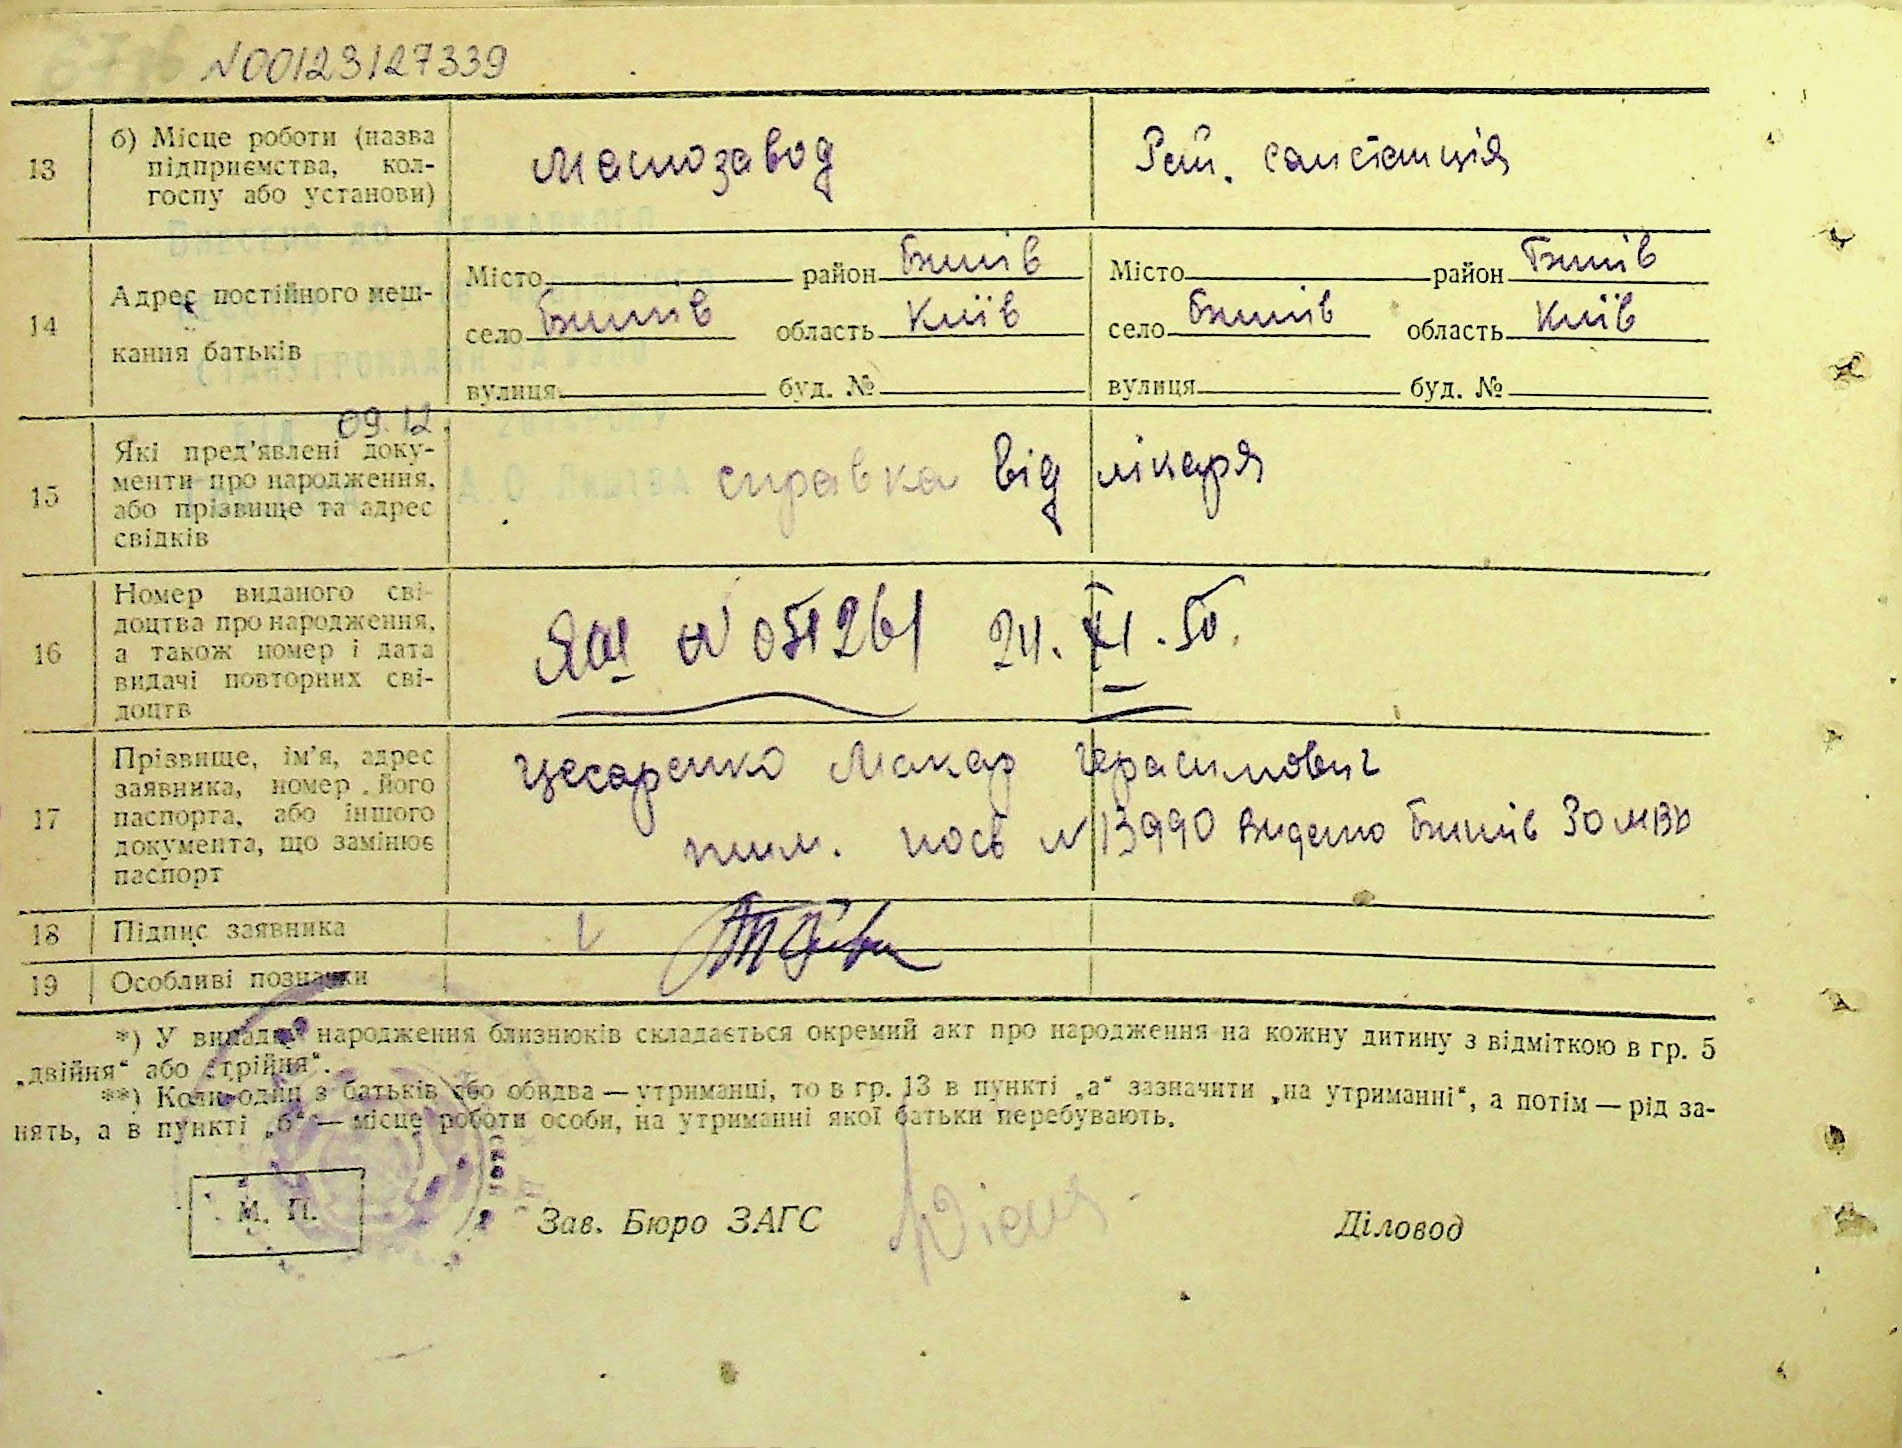 N00123127339
13
б) Місце роботи (назва
підприємства, кол-
госпу або установи)
маслозавод
Рай. санстанція
14
Адрес постійного меш-
кання батьків
Місто район Бишів
село Бишів область Київ
вулиця буд. №
Місто район Бишів
село Бишів область Київ
вулиця буд. №
09.12.
15
Які пред'явлені доку-
менти про народження,
або прізвище та адрес
свідків
справка від лікаря
16
Номер виданого сві-
доцтва про народження,
а також номер і дата
видачі повторних сві-
доцтв
N 051261 24. XI. 50.
17
Прізвище, ім'я, адрес
заявника, номер його
паспорта, або іншого
документа, що замінює
паспорт
Цесаренко Макар Герасимович
тим. посв N 13990 видано Бишів
18
Підпис заявника
19
Особливі позначки
*) У випадку народження близнюків складається окремий акт про народження на кожну дитину з відміткою в гр. 5
„двійня“ або „трійня“.
**) Коли один з батьків або обидва — утриманці, то в гр. 13 в пункті „а“ зазначити „на утриманні“, а потім — рід за-
нять, а в пункті „б“ — місце роботи особи, на утриманні якої батьки перебувають.
М. П.
Зав. Бюро ЗАГС
Діловод